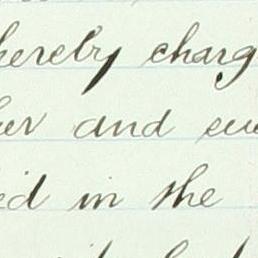 hereby charg
er and eve
ed in the